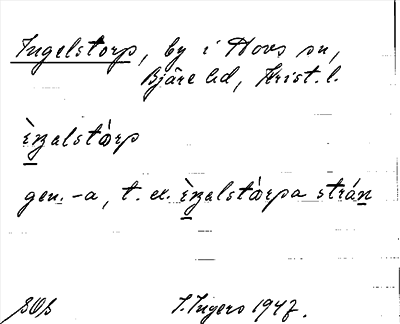 Ingelstorp, by i Hovs sn,
Bjäre hd, Krist. l.
èŋalstòrp
gen. -a, t. ex. èŋalstòrpa strán
SOB I. Ingers 1947.